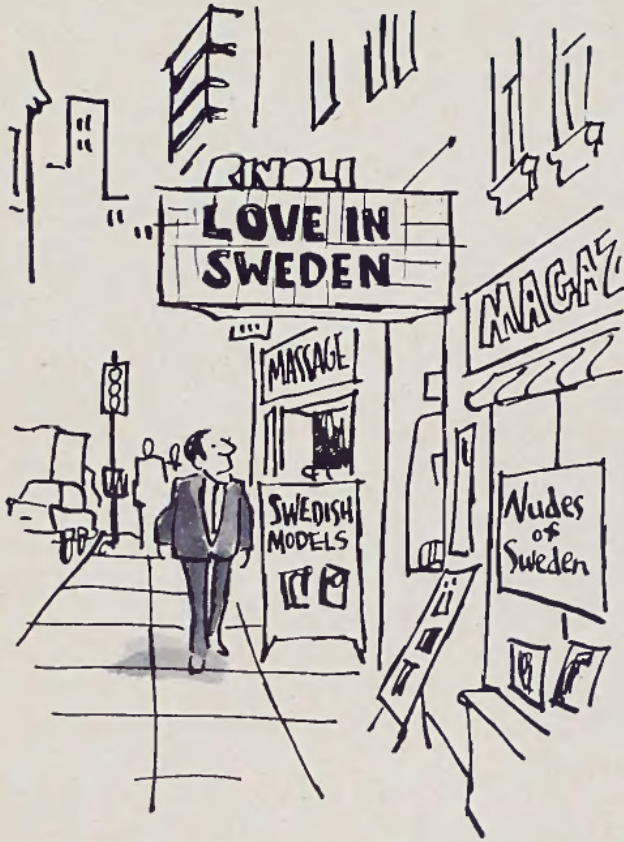 LOVE IN
SWEDEN
MASSAGE
SWEDISH
MODELS
MAGAZ
Nudes
of
Sweden